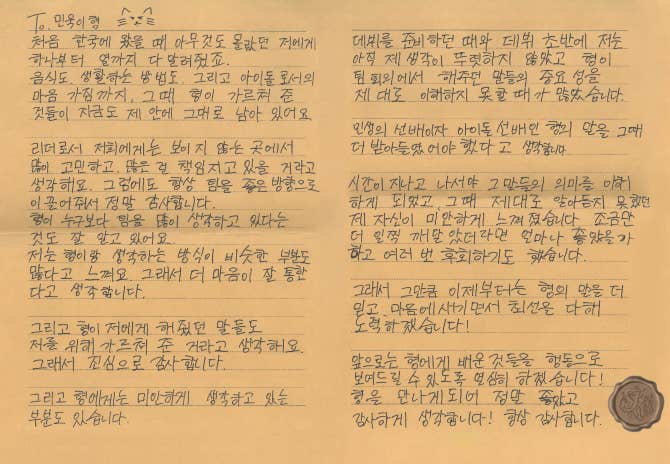 To. 민욱이 형
처음 한국에 왔을 때 아무것도 몰랐던 저에게
하나부터 열까지 다 알려줬죠.
음식도, 생활하는 방법도. 그리고 아이돌로서의
마음 가짐까지, 그때 형이 가르쳐 준
것들이 지금도 제 안에 그대로 남아 있어요
리더로서 저희에게는 보이지 않는 곳에서
많이 고민하고, 많은 걸 책임지고 있을 거라고
생각해요. 그럼에도 항상 팀을 좋은 방향으로
이끌어줘서 정말 감사합니다.
형이 누구보다 팀을 많이 생각하고 있다는
것도 잘 알고 있어요.
저는 형이랑 생각하는 방식이 비슷한 부분도
많다고 느껴요. 그래서 더 마음이 잘 통한
다고 생각합니다.
그리고 형이 저에게 해줬던 말들도
저를 위해 가르쳐 준 거라고 생각해요.
그래서 진심으로 감사합니다.
그리고 형에게는 미안하게 생각하고 있는
부분도 있습니다.
데뷔를 준비하던 때와 데뷔 초반에 저는
아직 제 생각이 뚜렷하지 않았고 형이
팀 회의에서 해주던 말들의 중요성을
제대로 이해하지 못할 때가 많았습니다.
인생의 선배이자 아이돌 선배인 형의 말을 그때
더 받아들였어야 했다고 생각합니다
시간이 지나고 나서야 그 말들의 의미를 이해
하게 되었고, 그때 제대로 알아듣지 못했던
제 자신이 미안하게 느껴졌습니다 조금만
더 일찍 깨달았더라면 얼마나 좋았을까
하고 여러 번 후회하기도 했습니다.
그래서 그만큼 이제부터는 형의 말을 더
믿고, 마음에 새기면서 최선을 다해
노력하겠습니다!
앞으로는 형에게 배운 것들을 행동으로
보여드릴 수 있도록 열심히 하겠습니다!
형을 만나게 되어 정말 좋았고
감사하게 생각합니다! 항상 감사합니다.